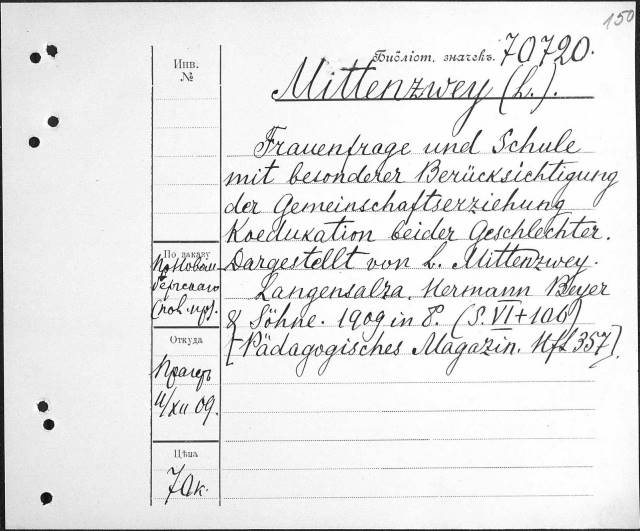 150
Библіот. значекъ. 70720.
Инв.
№
Mittenzwey (L.).
Frauenfrage und Schule
mit besonderer Berücksichtigung
der Gemeinschaftserziehung
Koedukation beider Geschlechter.
Dargestellt von L. Mittenzwey.
Langensalza. Hermann Beyer
& Söhne. 1909 in 8. (S. VI+106)
[Pädagogisches Magazin. Hft 357].
По заказу
Откуда
11/XII 09.
Цѣна
70к.